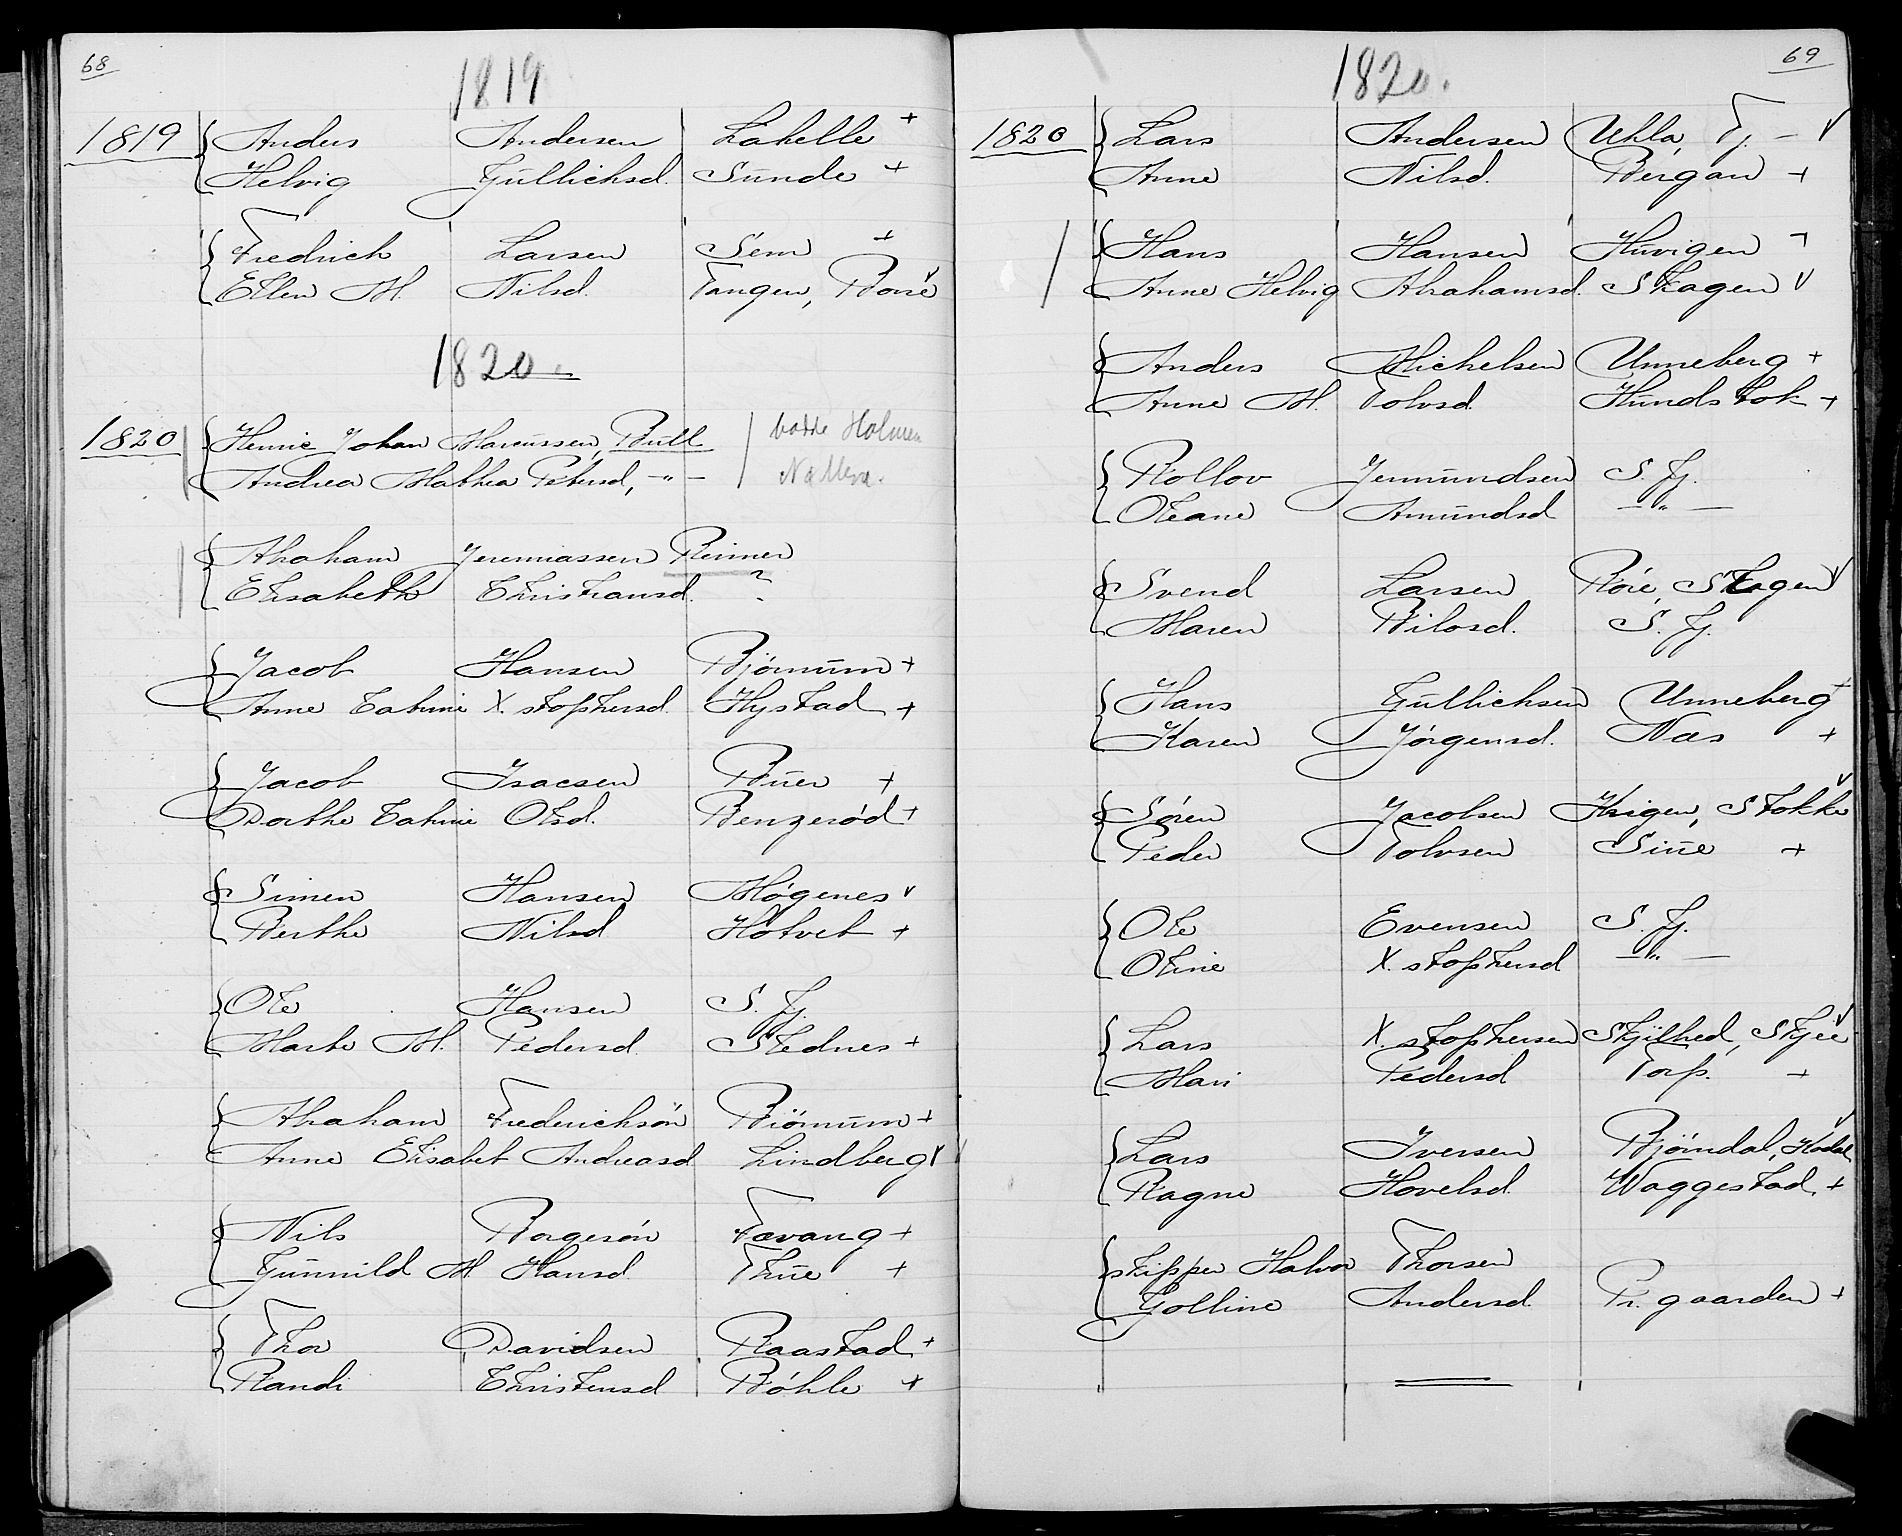 68
1819
1819 Anders Andersen Lakelle +
Helvig Gullichsd. Sunde +
Fredrich Larsen Sem +
Ellen M. Nilsd. Tangen, Borre v
1820.
1820 Henric Johan Marcussen, Bull
Andrea Mathea Petersd, -"-
Holmen
Abraham Jeremiassen Rimmer
Elisabeth Christiansd. ?
Jacob Hansen Bjørnum +
Anne Catrine X.stophersd. Hystad +
Jacob Isacsen Buer +
Dorthe Catrine Olsd. Benzerød +
Simen Hansen Møgenes v
Berthe Nilsd Hotvet +
Ole Hansen S. Fj.
Marte M. Pedersd. Stednes +
Abraham Frederichsön Biørnum +
Anne Elisabet Andreasd Lindberg v
Nils Borgersön Fævang +
Gunnild M Hansd. Thüe +
Thor Davidsen Raastad +
Randi Christensd Bøhle +
69
1820.
1820 Lars Andersen Uhla, Tj. – v
Anne Nilsd. Bergan +
Hans Hansen Huvigen +
Anne Helvig Abrahamsd. Skagen v
Anders Michelsen Unneberg +
Anne M. Tolvsd. Hundstok +
Rollov Jermundsen S. Fj.
Oleane Amundsd -"-
Svend Larsen Röre, Skagen v
Maren Nilsd. S. Fj.
Hans Gullichsen Unneberg +
Karen Jörgensd. Næs +
Sören Jacobsen Stokke v
Peder Tolvsen Süe +
Ole Evensen S. Fj.
Oline X.stophersd -"-
Lars X.stophersen Skjelhed, Skjee v
Mari Pedersd Torp. +
Lars Iversen Bjørndal, Kodal v
Ragne Hovelsd. Waggestad. +
Skipper Halvor Thorsen
Golline Andersd. Pr. gaarden +